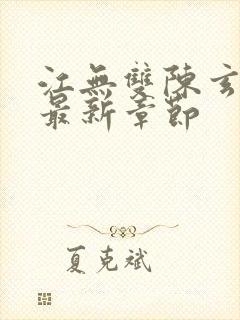 江無雙陳玄
最新章節
夏克斌